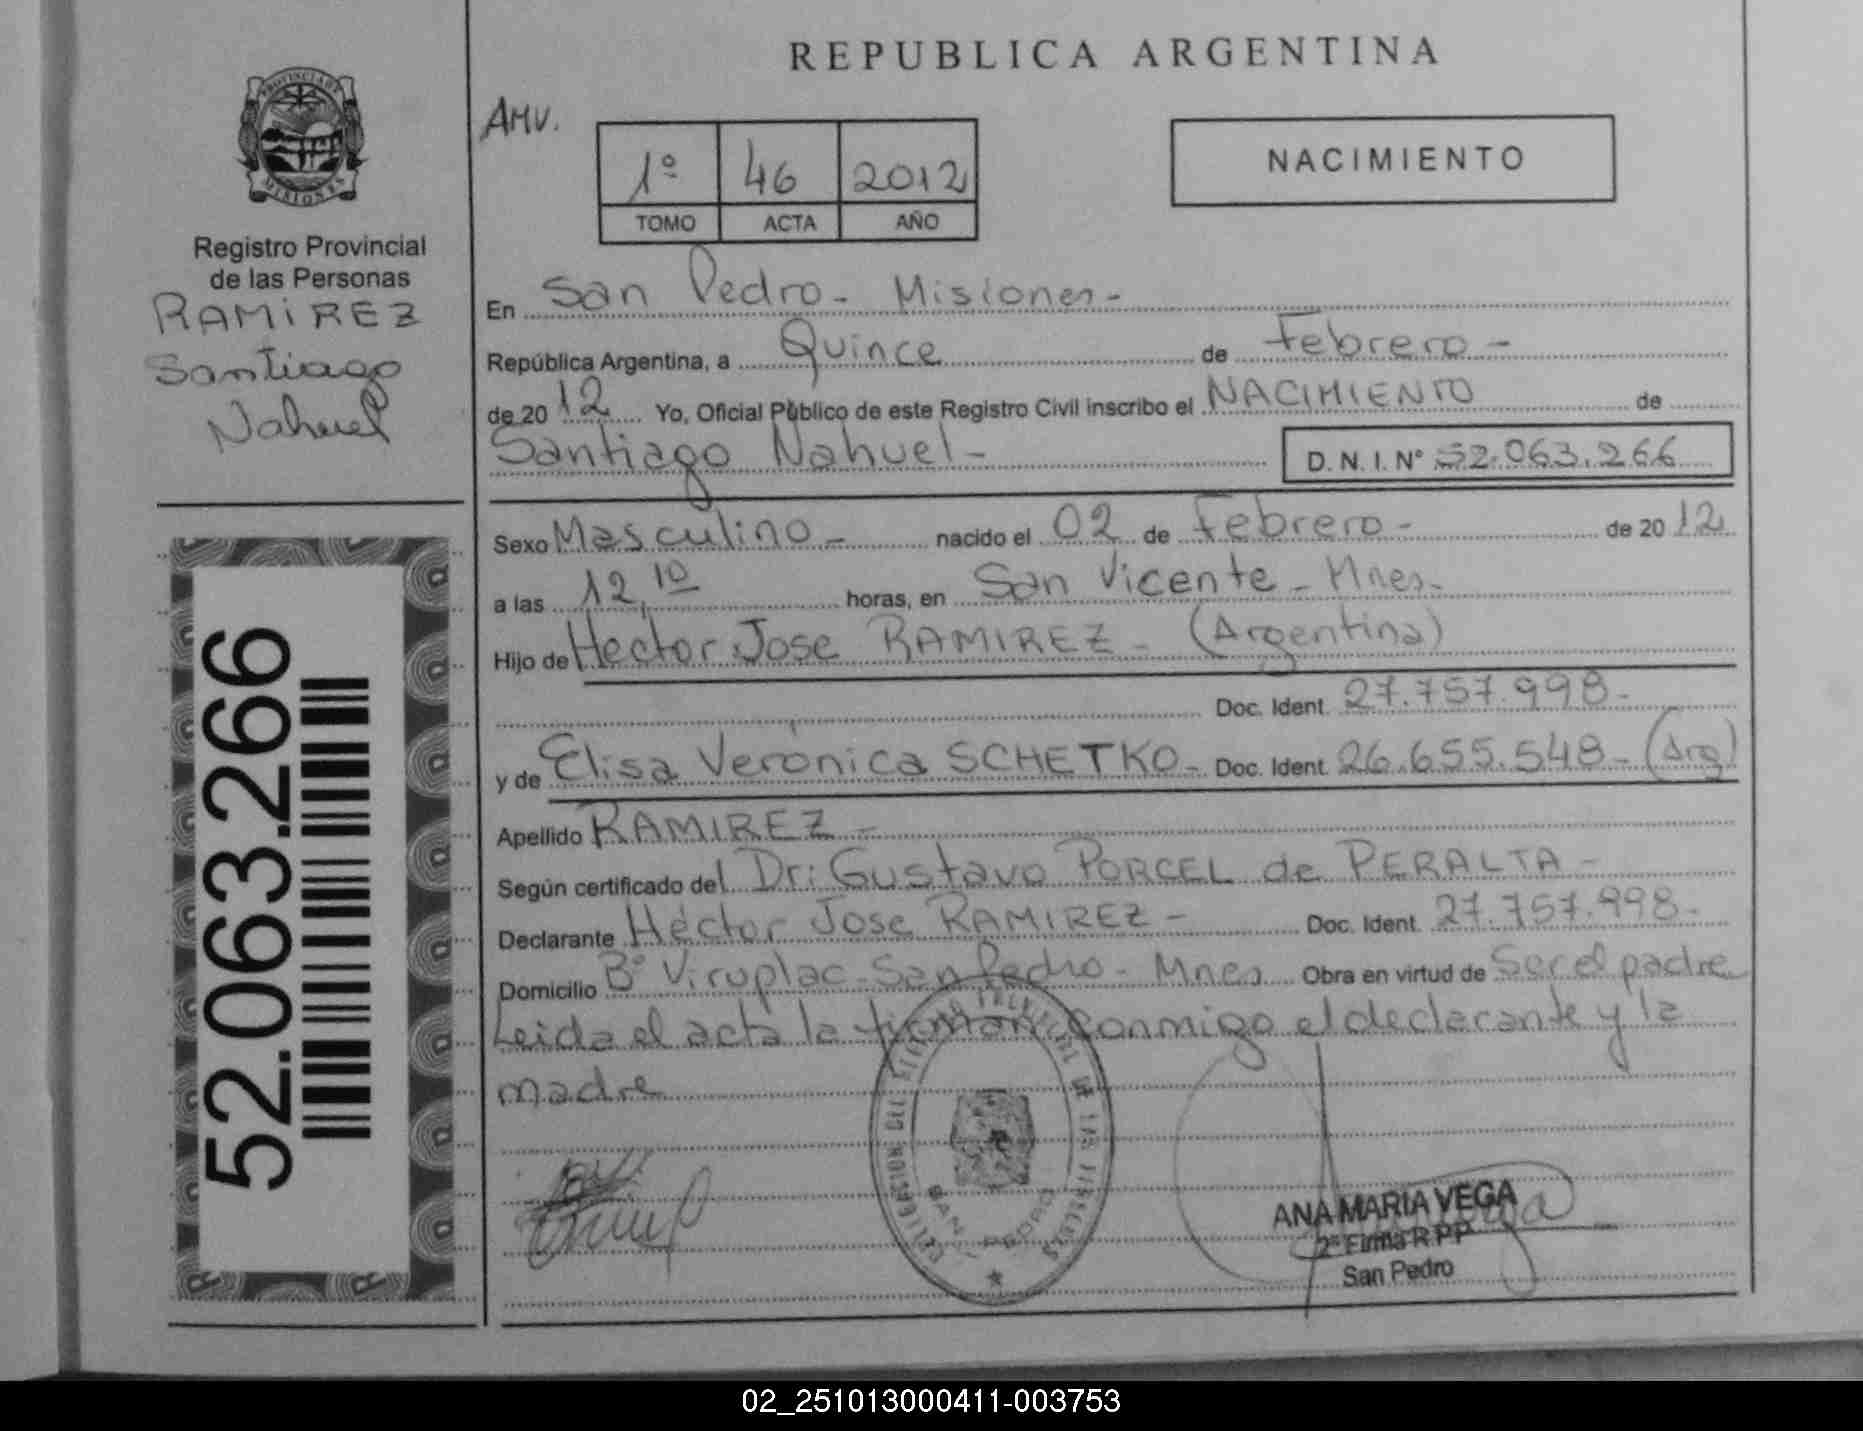 REPUBLICA ARGENTINA
PROVINCIA DE
MISIONES
Registro Provincial
de las Personas
RAMIREZ
Santiago
Nahuel
52.063.266
AMV.
1º 46 2012
TOMO ACTA AÑO
NACIMIENTO
En San Pedro - Misiones -
República Argentina, a Quince de Febrero -
de 2012 Yo, Oficial Público de este Registro Civil inscribo el NACIMIENTO de
Santiago Nahuel - D.N.I. Nº 52.063.266
Sexo Masculino - nacido el 02 de Febrero - de 2012
a las 12,10 horas, en San Vicente - Mnes -
Hijo de Hector Jose RAMIREZ - (Argentina)
Doc. Ident. 27.757.998 -
y de Elisa Verónica SCHETKO - Doc. Ident. 26.655.548 - (Arg)
Apellido RAMIREZ -
Según certificado del Dr: Gustavo PORCEL de PERALTA -
Declarante Héctor Jose RAMIREZ - Doc. Ident. 27.757.998 -
Domicilio Bº Viruplac - San Pedro - Mnes Obra en virtud de Ser el padre
Leida el acta la firman conmigo el declarante y la
madre
SAN PEDRO
ANA MARIA VEGA
2ª Firma R P P
San Pedro
02_251013000411-003753